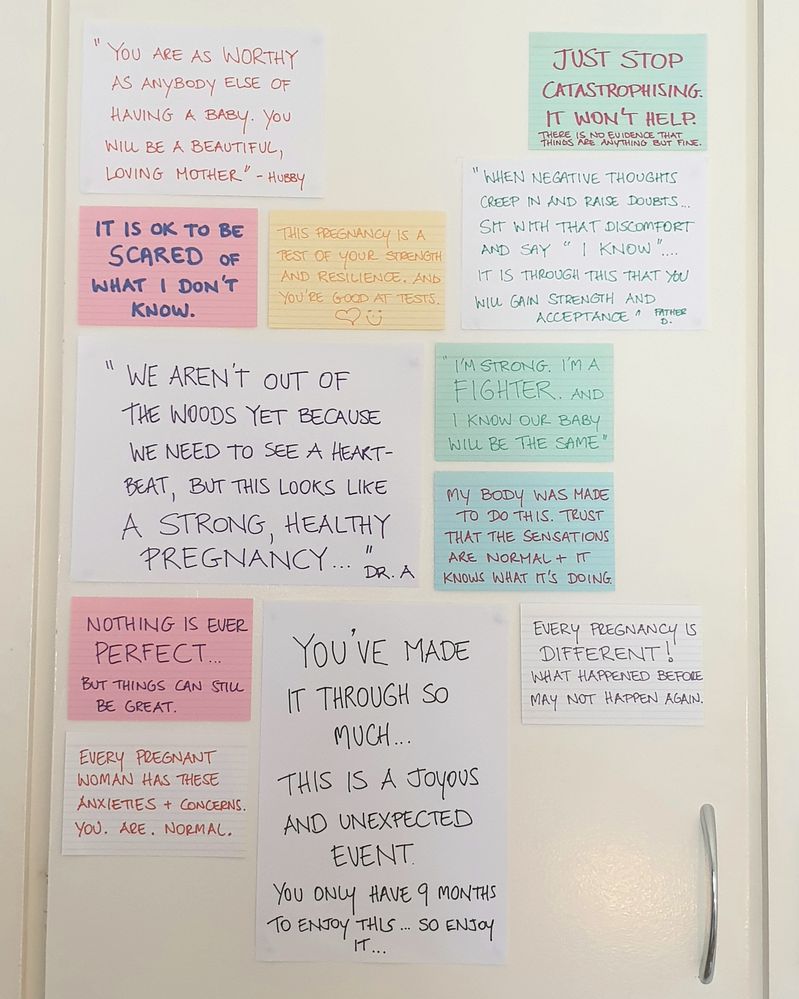 "YOU ARE AS WORTHY
AS ANYBODY ELSE OF
HAVING A BABY. YOU
WILL BE A BEAUTIFUL,
LOVING MOTHER" - HUBBY
JUST STOP
CATASTROPHISING.
IT WON'T HELP.
THERE IS NO EVIDENCE THAT
THINGS ARE ANYTHING BUT FINE.
IT IS OK TO BE
SCARED OF
WHAT I DON'T
KNOW.
THIS PREGNANCY IS A
TEST OF YOUR STRENGTH
AND RESILIENCE. AND
YOU'RE GOOD AT TESTS.
"WHEN NEGATIVE THOUGHTS
CREEP IN AND RAISE DOUBTS...
SIT WITH THAT DISCOMFORT
AND SAY "I KNOW"....
IT IS THROUGH THIS THAT YOU
WILL GAIN STRENGTH AND
ACCEPTANCE" FATHER
D.
"WE AREN'T OUT OF
THE WOODS YET BECAUSE
WE NEED TO SEE A HEART-
BEAT, BUT THIS LOOKS LIKE
A STRONG, HEALTHY
PREGNANCY..."
DR. A
"I'M STRONG. I'M A
FIGHTER. AND
I KNOW OUR BABY
WILL BE THE SAME"
MY BODY WAS MADE
TO DO THIS. TRUST
THAT THE SENSATIONS
ARE NORMAL + IT
KNOWS WHAT IT'S DOING.
NOTHING IS EVER
PERFECT...
BUT THINGS CAN STILL
BE GREAT.
YOU'VE MADE
IT THROUGH SO
MUCH...
THIS IS A JOYOUS
AND UNEXPECTED
EVENT.
YOU ONLY HAVE 9 MONTHS
TO ENJOY THIS... SO ENJOY
IT...
EVERY PREGNANCY IS
DIFFERENT!
WHAT HAPPENED BEFORE
MAY NOT HAPPEN AGAIN.
EVERY PREGNANT
WOMAN HAS THESE
ANXIETIES + CONCERNS.
YOU. ARE. NORMAL.